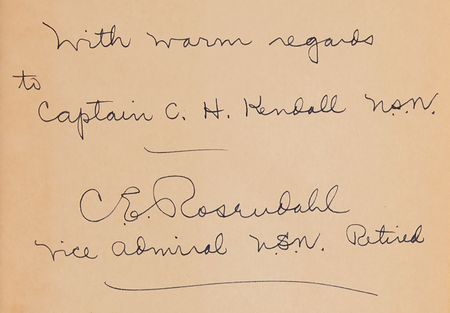 With warm regards
to
Captain C. H. Kendall U.S.N.
C.E. Rosendahl
Vice Admiral U.S.N. Retired